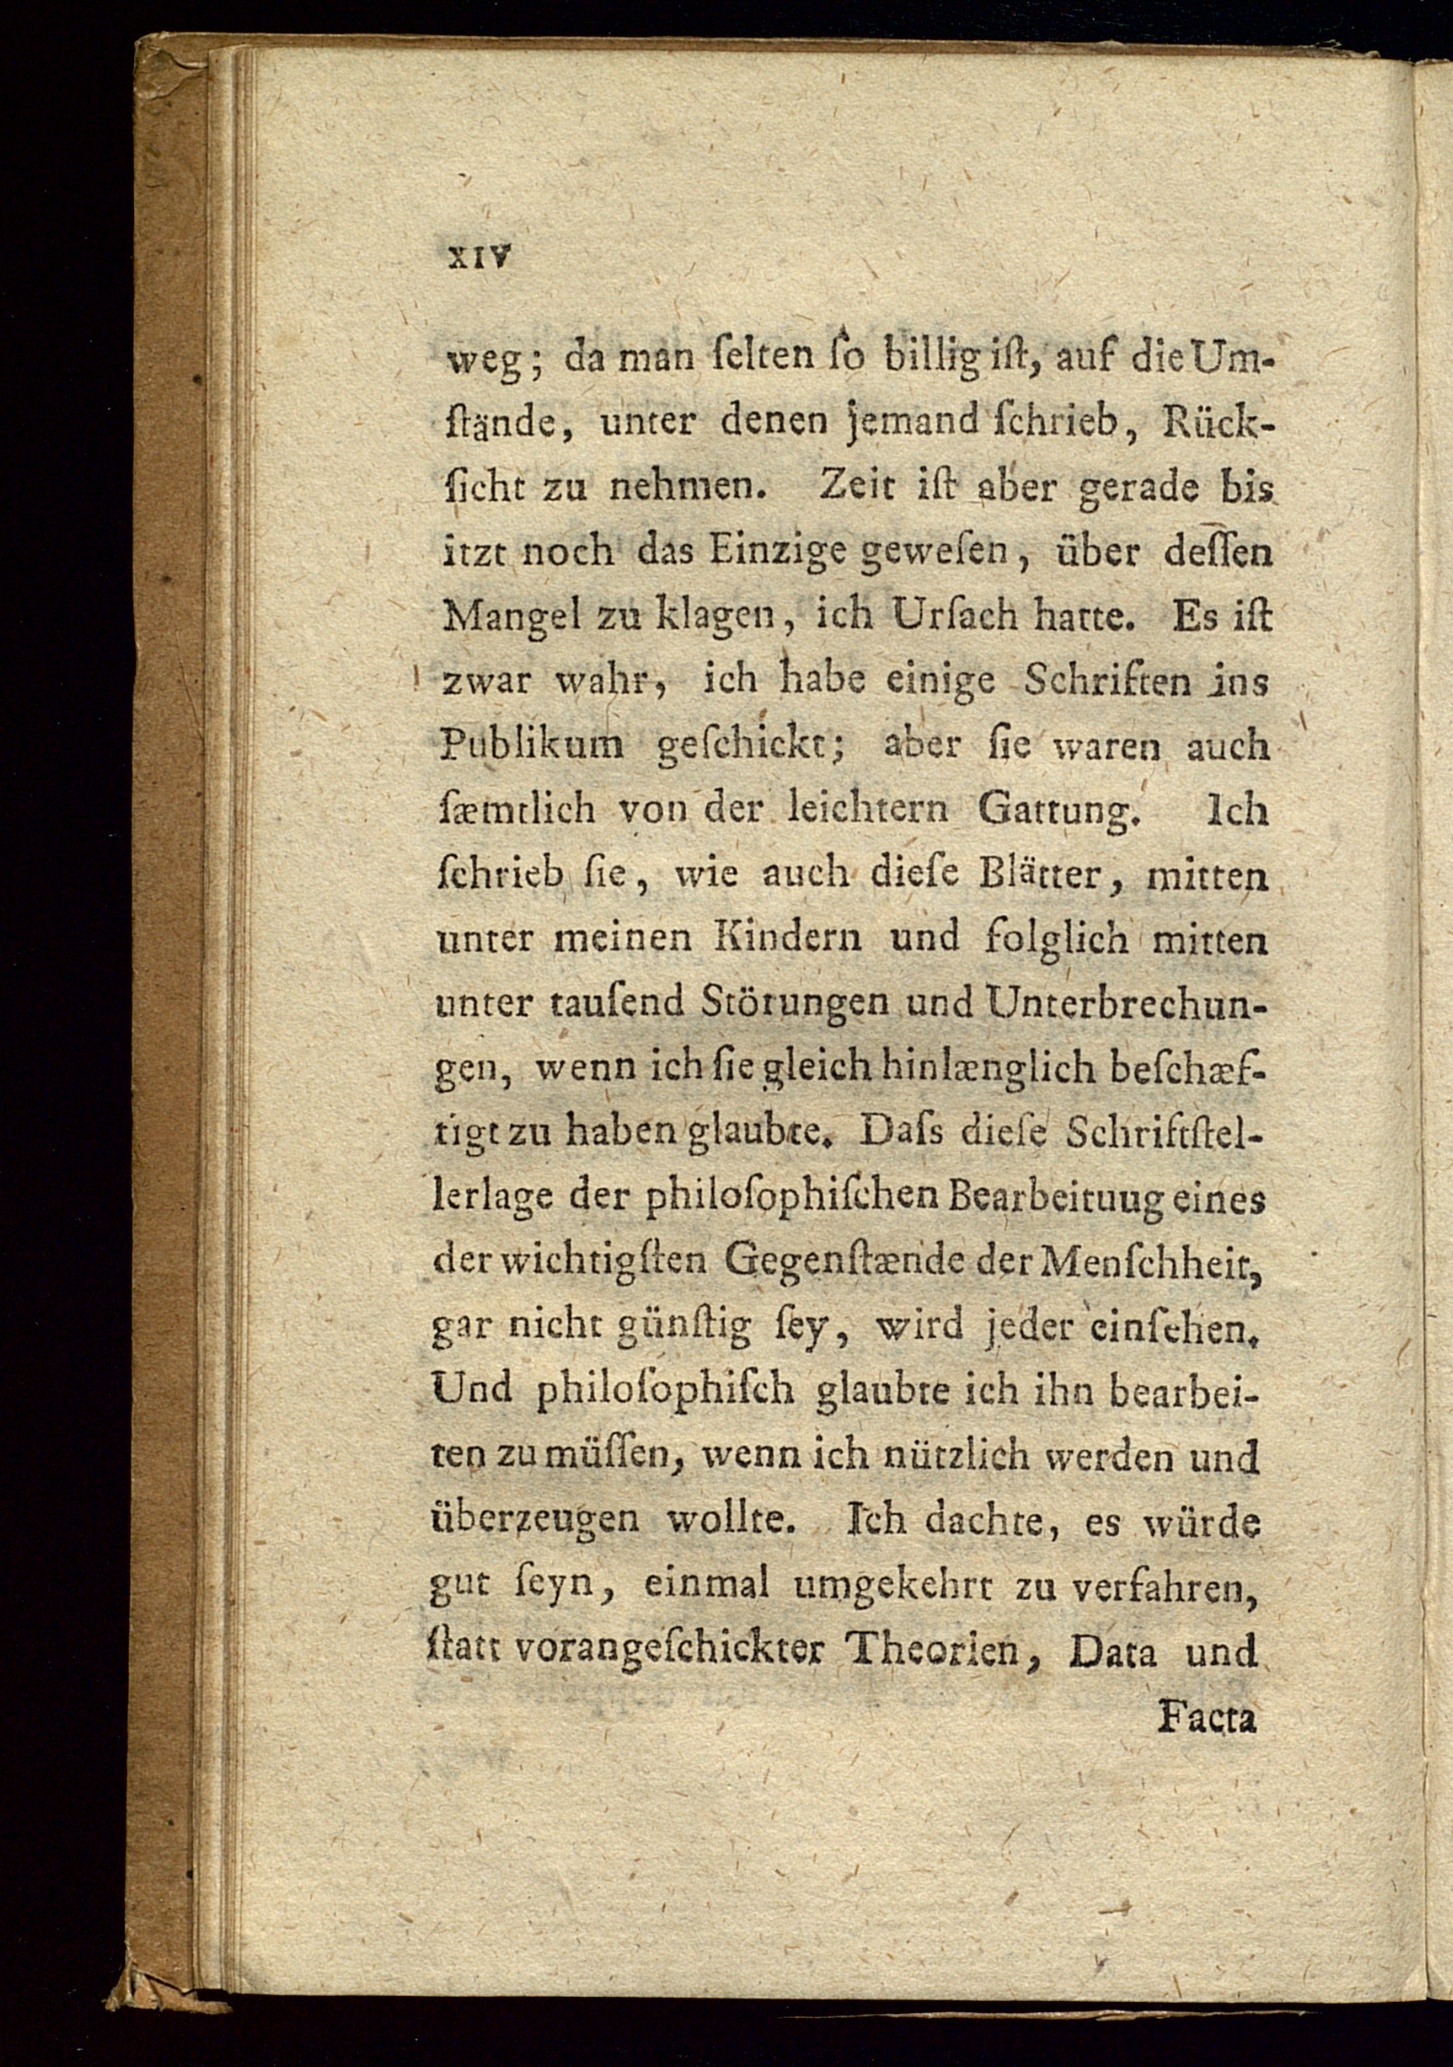 XIV
weg; da man ſelten ſo billig iſt, auf die Um-
ſtände, unter denen jemand ſchrieb, Rück-
ſicht zu nehmen. Zeit iſt aber gerade bis
itzt noch das Einzige geweſen, über deſſen
Mangel zu klagen, ich Urſach hatte. Es iſt
zwar wahr, ich habe einige Schriften ins
Publikum geſchickt; aber ſie waren auch
ſæmtlich von der leichtern Gattung. Ich
ſchrieb ſie, wie auch dieſe Blätter, mitten
unter meinen Kindern und folglich mitten
unter tauſend Störungen und Unterbrechun-
gen, wenn ich ſie gleich hinlænglich beſchæf-
tigt zu haben glaubte. Daſs dieſe Schriftſtel-
lerlage der philoſophiſchen Bearbeituug eines
der wichtigſten Gegenſtænde der Menſchheit,
gar nicht günſtig ſey, wird jeder einſehen.
Und philoſophiſch glaubte ich ihn bearbei-
ten zu müſſen, wenn ich nützlich werden und
überzeugen wollte. Ich dachte, es würde
gut ſeyn, einmal umgekehrt zu verfahren,
ſtatt vorangeſchickter Theorien, Data und
Facta